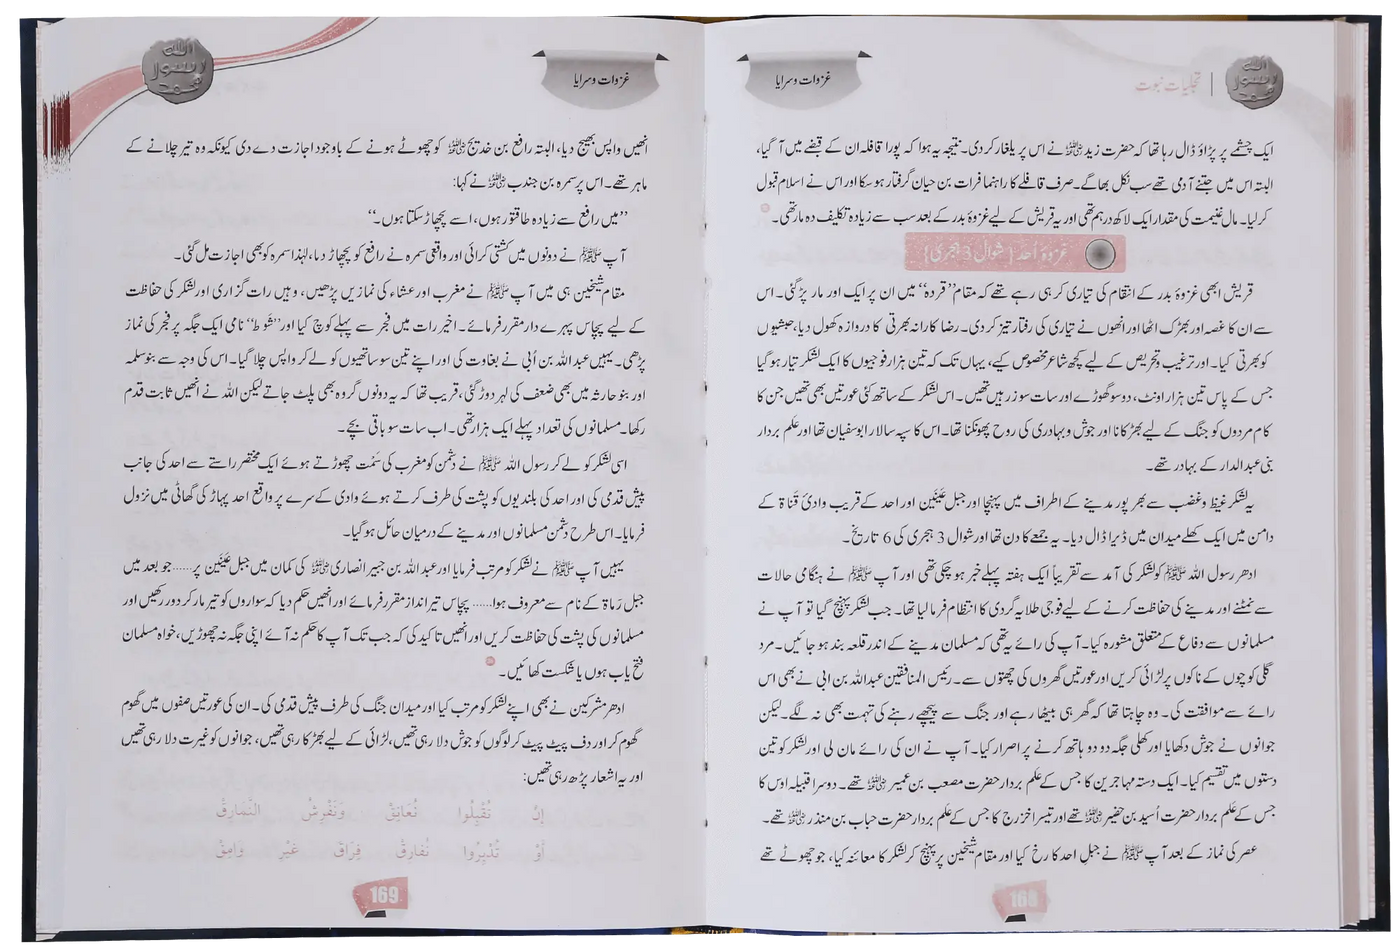 تجلیات نبوت
غزوات و سرایا
ایک چشمے پر پڑاؤ ڈال رہا تھا کہ حضرت زید رضی اللہ عنہ نے اس پر یلغار کر دی۔ نتیجہ یہ ہوا کہ پورا قافلہ ان کے قبضے میں آ گیا،
البتہ اس میں جتنے آدمی تھے سب نکل بھاگے۔ صرف قافلے کا راہنما فرات بن حیان گرفتار ہو سکا اور اس نے اسلام قبول
کر لیا۔ مال غنیمت کی مقدار ایک لاکھ درہم تھی اور یہ قریش کے لیے غزوۂ بدر کے بعد سب سے زیادہ تکلیف دہ مار تھی۔
غزوۂ احد {شوال 3 ہجری}
قریش ابھی غزوۂ بدر کے انتقام کی تیاری کر ہی رہے تھے کہ مقام ”قردہ“ میں ان پر ایک اور مار پڑ گئی۔ اس
سے ان کا غصہ اور بھڑک اٹھا اور انھوں نے تیاری کی رفتار تیز کر دی۔ رضا کارانہ بھرتی کا دروازہ کھول دیا، حبشیوں
کو بھرتی کیا۔ اور ترغیب و تحریص کے لیے کچھ شاعر مخصوص کیے، یہاں تک کہ تین ہزار فوجیوں کا ایک لشکر تیار ہو گیا
جس کے پاس تین ہزار اونٹ، دو سو گھوڑے اور سات سو زرہیں تھیں۔ اس لشکر کے ساتھ کئی عورتیں بھی تھیں جن کا
کام مردوں کو جنگ کے لیے بھڑکانا اور جوش و بہادری کی روح پھونکنا تھا۔ اس کا سپہ سالار ابوسفیان تھا اور علم بردار
بنی عبدالدار کے بہادر تھے۔
یہ لشکر غیظ و غضب سے بھر پور مدینے کے اطراف میں پہنچا اور جبل عَیْنَین اور احد کے قریب وادیٔ قَناۃ کے
دامن میں ایک کھلے میدان میں ڈیرا ڈال دیا۔ یہ جمعے کا دن تھا اور شوال 3 ہجری کی 6 تاریخ۔
ادھر رسول اللہ ﷺ کو لشکر کی آمد سے تقریباً ایک ہفتہ پہلے خبر ہو چکی تھی اور آپ ﷺ نے ہنگامی حالات
سے نمٹنے اور مدینے کی حفاظت کرنے کے لیے فوجی طلایہ گردی کا انتظام فرما لیا تھا۔ جب لشکر پہنچ گیا تو آپ نے
مسلمانوں سے دفاع کے متعلق مشورہ کیا۔ آپ کی رائے یہ تھی کہ مسلمان مدینے کے اندر قلعہ بند ہو جائیں۔ مرد
گلی کوچوں کے ناکوں پر لڑائی کریں اور عورتیں گھروں کی چھتوں سے۔ رئیس المنافقین عبداللہ بن ابی نے بھی اس
رائے سے موافقت کی۔ وہ چاہتا تھا کہ گھر ہی بیٹھا رہے اور جنگ سے پیچھے رہنے کی تہمت بھی نہ لگے۔ لیکن
جوانوں نے جوش دکھایا اور کھلی جگہ دو دو ہاتھ کرنے پر اصرار کیا۔ آپ نے ان کی رائے مان لی اور لشکر کو تین
دستوں میں تقسیم کیا۔ ایک دستہ مہاجرین کا جس کے علم بردار حضرت مصعب بن عمیر رضی اللہ عنہ تھے۔ دوسرا قبیلہ اوس کا
جس کے علم بردار حضرت اُسید بن حضیر رضی اللہ عنہ تھے اور تیسرا خزرج کا جس کے علم بردار حضرت حباب بن منذر رضی اللہ عنہ تھے۔
عصر کی نماز کے بعد آپ ﷺ نے جبل احد کا رخ کیا اور مقام شیخین پر پہنچ کر لشکر کا معائنہ کیا، جو چھوٹے تھے
168
غزوات و سرایا
انھیں واپس بھیج دیا، البتہ رافع بن خدیج رضی اللہ عنہ کو چھوٹے ہونے کے باوجود اجازت دے دی کیونکہ وہ تیر چلانے کے
ماہر تھے۔ اس پر سمرہ بن جندب رضی اللہ عنہ نے کہا:
”میں رافع سے زیادہ طاقتور ہوں، اسے پچھاڑ سکتا ہوں۔“
آپ ﷺ نے دونوں میں کشتی کرائی اور واقعی سمرہ نے رافع کو پچھاڑ دیا، لہٰذا سمرہ کو بھی اجازت مل گئی۔
مقام شیخین ہی میں آپ ﷺ نے مغرب اور عشاء کی نمازیں پڑھیں، وہیں رات گزاری اور لشکر کی حفاظت
کے لیے پچاس پہرے دار مقرر فرمائے۔ اخیر رات میں فجر سے پہلے کوچ کیا اور ”شَوط“ نامی ایک جگہ پر فجر کی نماز
پڑھی۔ یہیں عبداللہ بن اُبی نے بغاوت کی اور اپنے تین سو ساتھیوں کو لے کر واپس چلا گیا۔ اس کی وجہ سے بنو سلمہ
اور بنو حارثہ میں بھی ضعف کی لہر دوڑ گئی، قریب تھا کہ یہ دونوں گروہ بھی پلٹ جاتے لیکن اللہ نے انھیں ثابت قدم
رکھا۔ مسلمانوں کی تعداد پہلے ایک ہزار تھی۔ اب سات سو باقی بچے۔
اسی لشکر کو لے کر رسول اللہ ﷺ نے دشمن کو مغرب کی سَمْت چھوڑتے ہوئے ایک مختصر راستے سے احد کی جانب
پیش قدمی کی اور احد کی بلندیوں کو پشت کی طرف کرتے ہوئے وادی کے سرے پر واقع احد پہاڑ کی گھاٹی میں نزول
فرمایا۔ اس طرح دشمن مسلمانوں اور مدینے کے درمیان حائل ہو گیا۔
یہیں آپ ﷺ نے لشکر کو مرتب فرمایا اور عبداللہ بن جبیر انصاری رضی اللہ عنہ کی کمان میں جبل عَیْنَین پر...... جو بعد میں
جبل رَماۃ کے نام سے معروف ہوا...... پچاس تیر انداز مقرر فرمائے اور انھیں حکم دیا کہ سواروں کو تیر مار کر دور رکھیں اور
مسلمانوں کی پشت کی حفاظت کریں اور انھیں تاکید کی کہ جب تک آپ کا حکم نہ آئے اپنی جگہ نہ چھوڑیں، خواہ مسلمان
فتح یاب ہوں یا شکست کھائیں۔
ادھر مشرکین نے بھی اپنے لشکر کو مرتب کیا اور میدان جنگ کی طرف پیش قدمی کی۔ ان کی عورتیں صفوں میں گھوم
گھوم کر اور دف پیٹ پیٹ کر لوگوں کو جوش دلا رہی تھیں، لڑائی کے لیے بھڑکا رہی تھیں، جوانوں کو غیرت دلا رہی تھیں
اور یہ اشعار پڑھ رہی تھیں:
إِنْ تُقْبِلُوا نُعَانِقْ وَنَفْرِشُ النَّمَارِقْ
أَوْ تُدْبِرُوا نُفَارِقْ فِرَاقَ غَيْرَ وَامِقْ
169